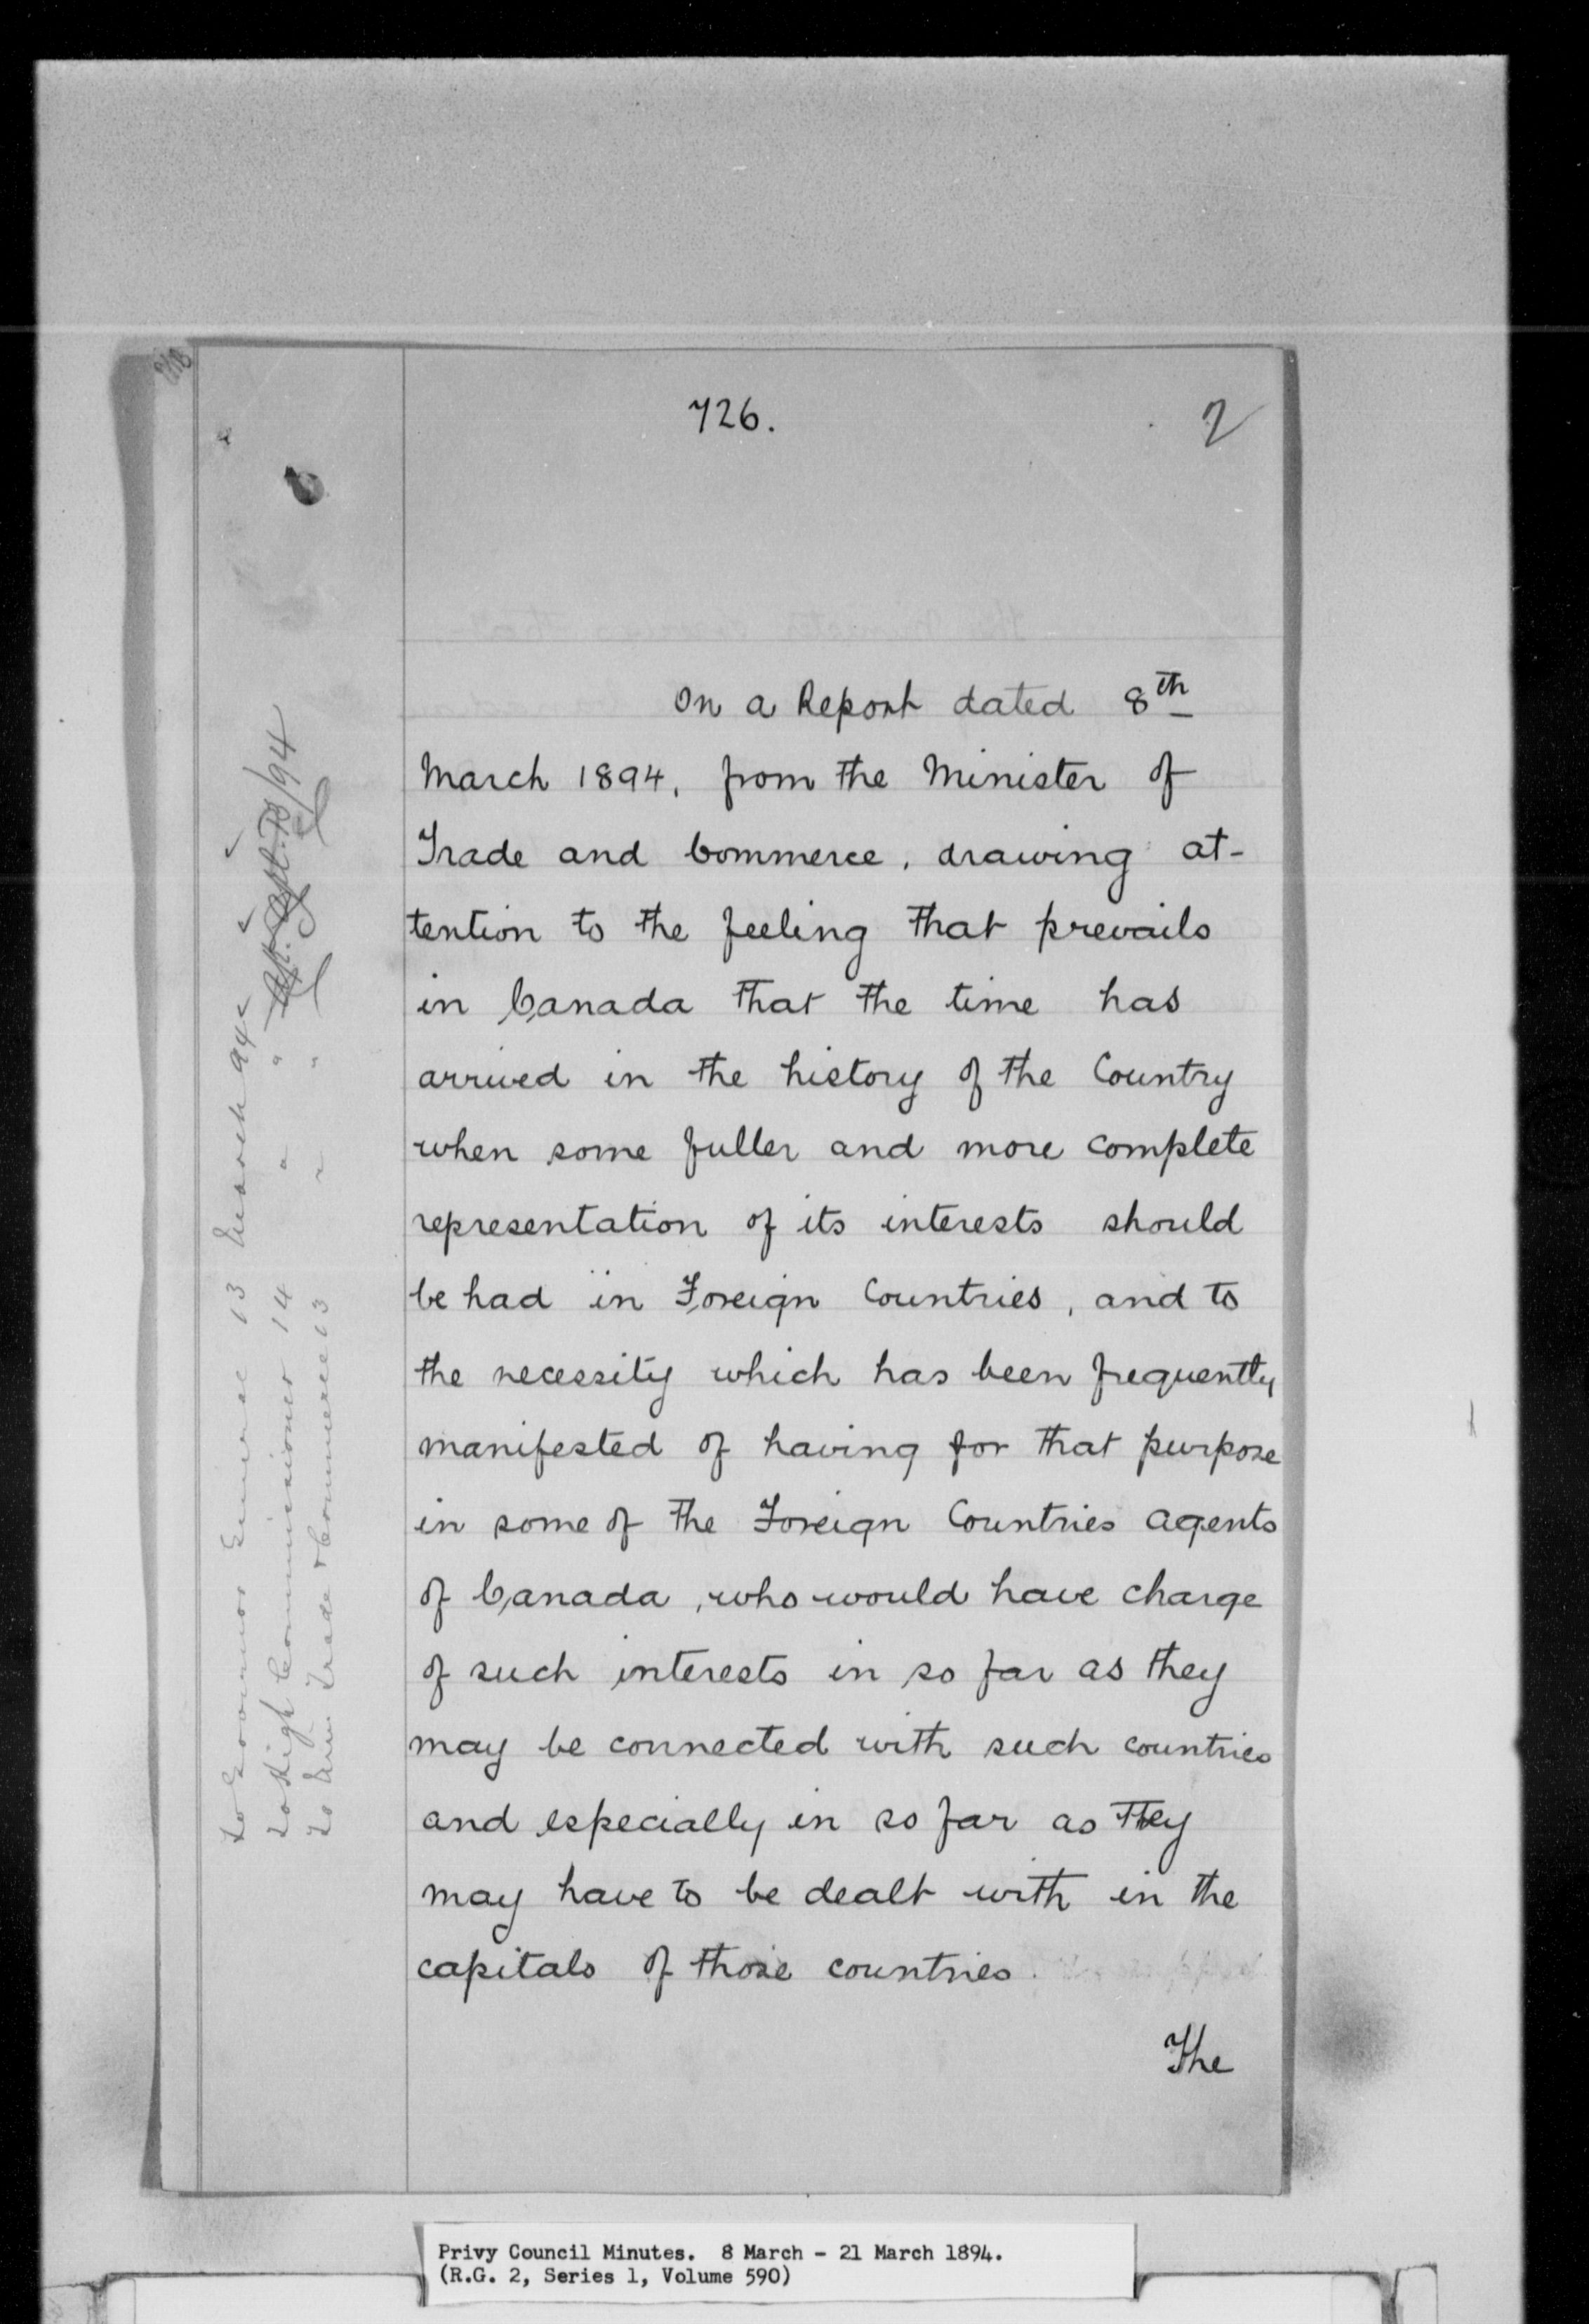 726. 2
On a Report dated 8th
March 1894, from the Minister of
Trade and Commerce, drawing at-
tention to the feeling that prevails
in Canada that the time has
arrived in the history of the Country
when some fuller and more complete
representation of its interests should
be had in Foreign Countries, and to
the necessity which has been frequently
manifested of having for that purpose
in some of the Foreign Countries agents
of Canada, who would have charge
of such interests in so far as they
may be connected with such countries
and especially in so far as they
may have to be dealt with in the
capitals of those countries.
The
To Governor General 13 March 94
To High Commissioner 14 " "
To Min Trade & Commerce 13 " "
Privy Council Minutes. 8 March - 21 March 1894.
(R.G. 2, Series 1, Volume 590)